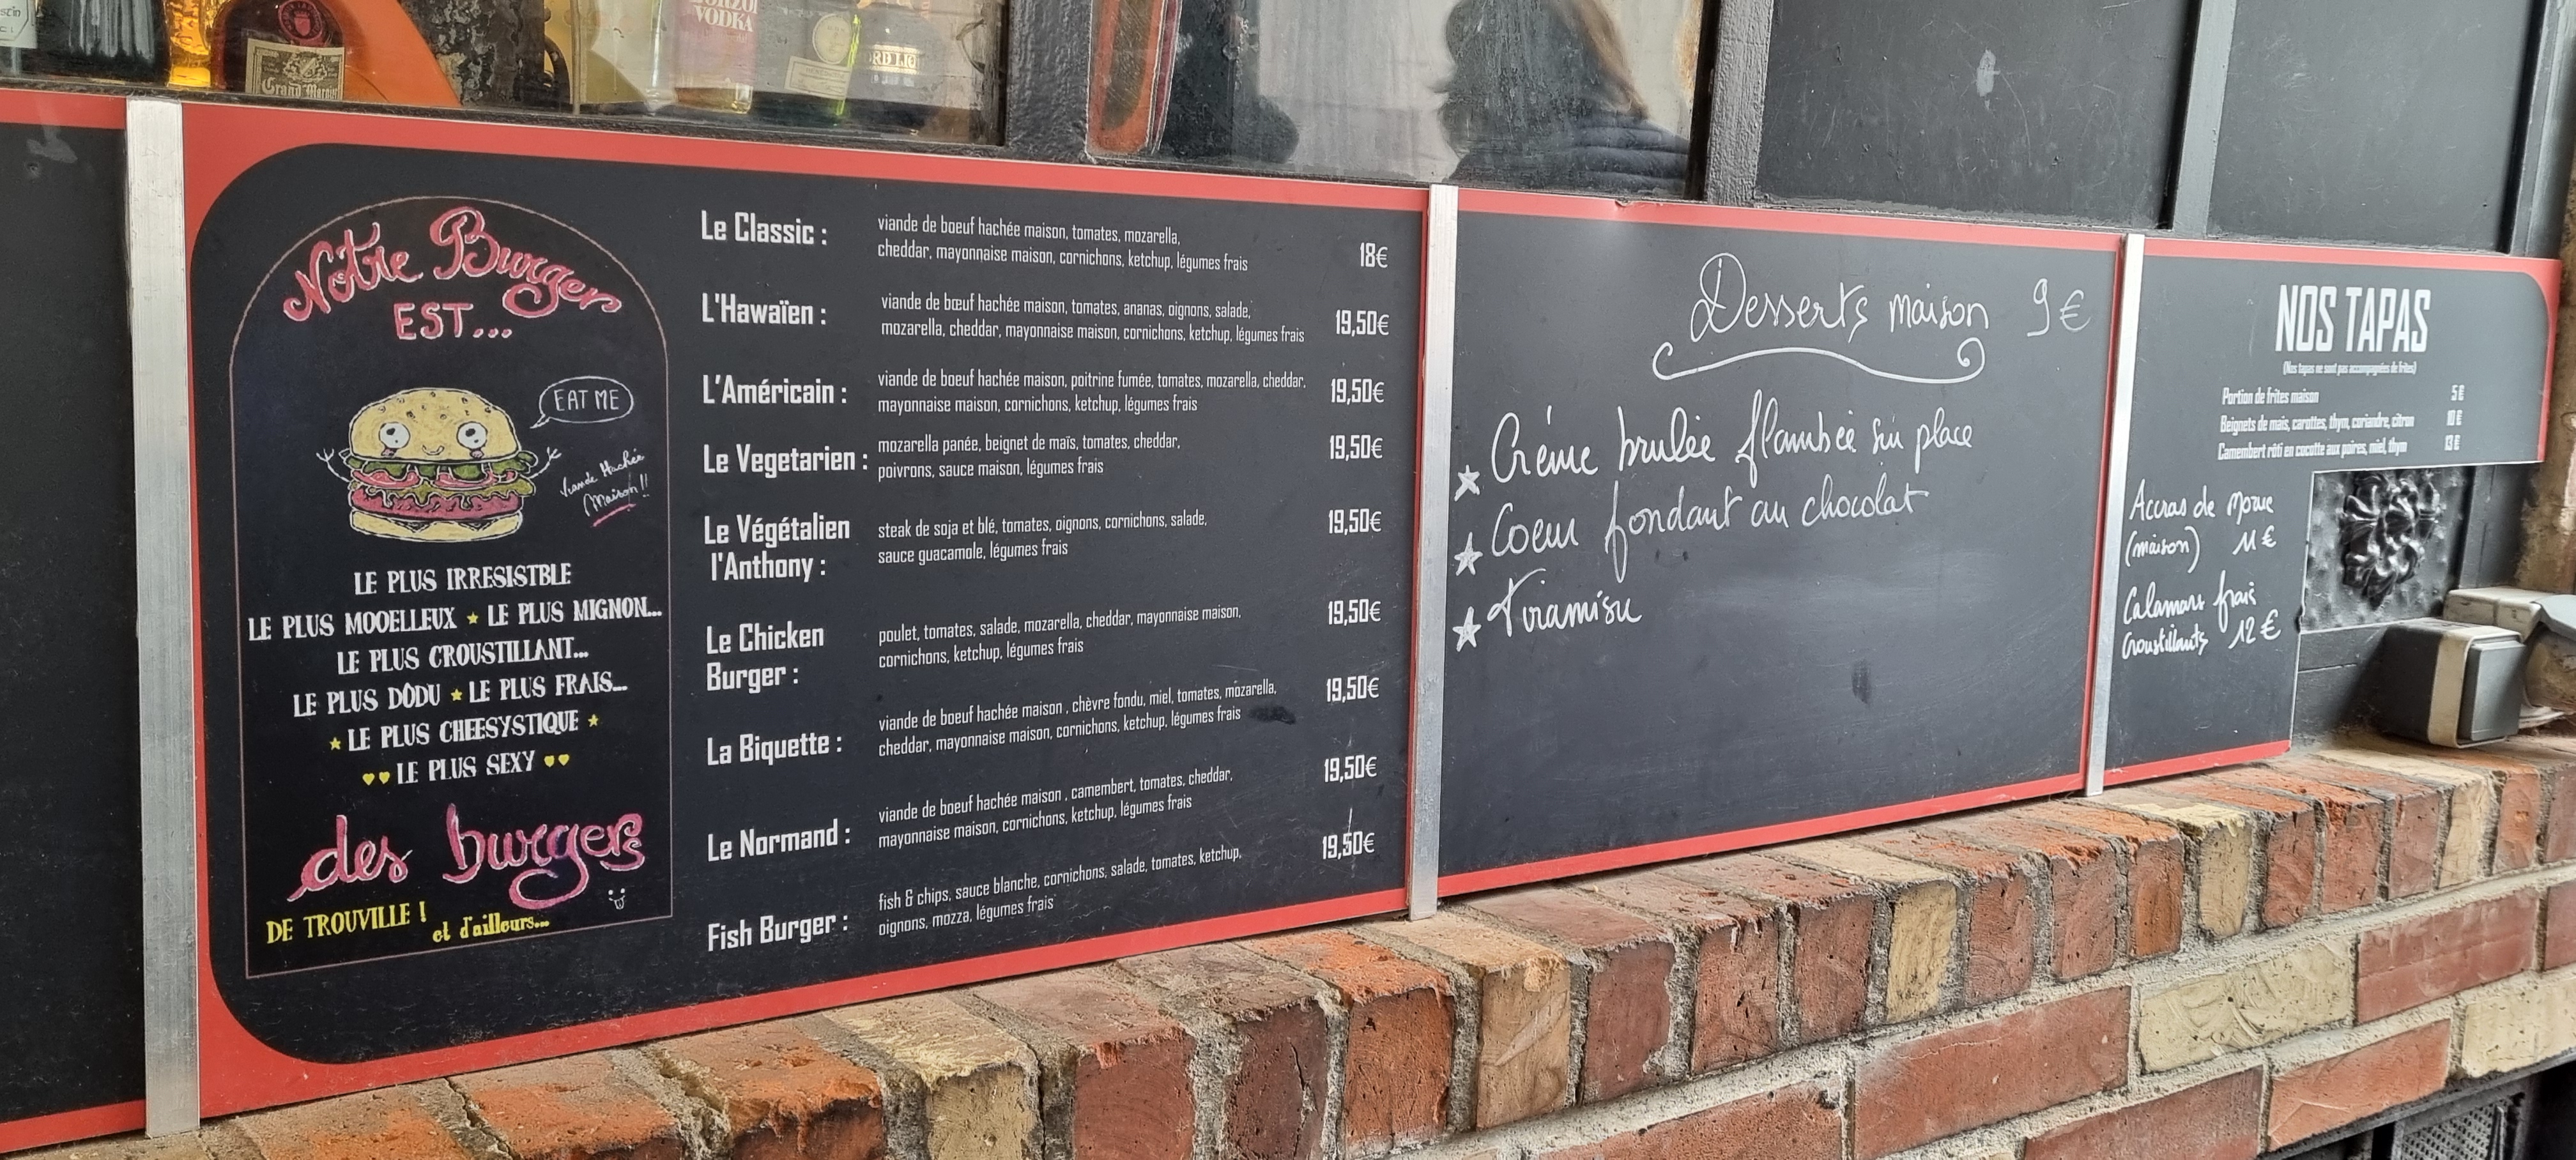 VODKA
Grand Marnier
Notre Burger
EST...
EAT ME
Viande Hachée
Maison !!
LE PLUS IRRESISTBLE
LE PLUS MOOELLEUX ★ LE PLUS MIGNON...
LE PLUS CROUSTILLANT...
LE PLUS DÔDU ★ LE PLUS FRAIS...
★ LE PLUS CHEESYSTIQUE ★
♥♥ LE PLUS SEXY ♥♥
des burgers
DE TROUVILLE !
et d'ailleurs...
Le Classic :
viande de boeuf hachée maison, tomates, mozarella,
cheddar, mayonnaise maison, cornichons, ketchup, légumes frais
18€
L'Hawaïen :
viande de bœuf hachée maison, tomates, ananas, oignons, salade,
mozarella, cheddar, mayonnaise maison, cornichons, ketchup, légumes frais
19,50€
L'Américain :
viande de boeuf hachée maison, poitrine fumée, tomates, mozarella, cheddar,
mayonnaise maison, cornichons, ketchup, légumes frais
19,50€
Le Vegetarien :
mozarella panée, beignet de maïs, tomates, cheddar,
poivrons, sauce maison, légumes frais
19,50€
Le Végétalien
l'Anthony :
steak de soja et blé, tomates, oignons, cornichons, salade,
sauce guacamole, légumes frais
19,50€
Le Chicken
Burger :
poulet, tomates, salade, mozarella, cheddar, mayonnaise maison,
cornichons, ketchup, légumes frais
19,50€
La Biquette :
viande de boeuf hachée maison , chèvre fondu, miel, tomates, mozarella,
cheddar, mayonnaise maison, cornichons, ketchup, légumes frais
19,50€
Le Normand :
viande de boeuf hachée maison , camembert, tomates, cheddar,
mayonnaise maison, cornichons, ketchup, légumes frais
19,50€
Fish Burger :
fish & chips, sauce blanche, cornichons, salade, tomates, ketchup,
oignons, mozza, légumes frais
19,50€
Desserts maison 9€
★ Crème brulée flambée sur place
★ Coeur fondant au chocolat
★ Tiramisu
NOS TAPAS
(Nos tapas ne sont pas accompagnées de frites)
Portion de frites maison 5€
Beignets de maïs, carottes, thym, coriandre, citron 10€
Camembert rôti en cocotte aux poires, miel, thym 13€
Accras de morue
(maison) 11€
Calamars frais
croustillants 12€